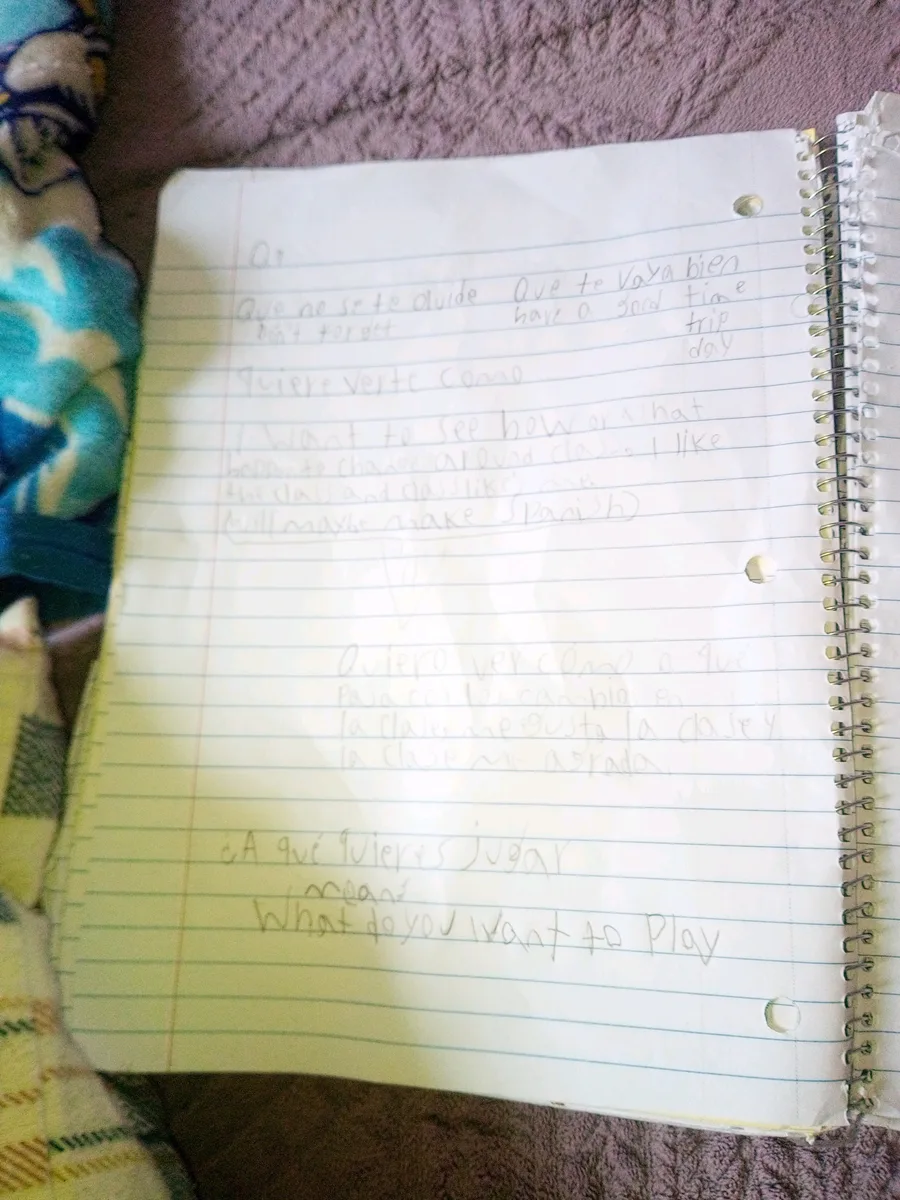 Qu
Que no se te olvide Que te vaya bien
don't forget have a good time
trip
day
quiere verte como
I want to see how or what
class I like
the class and
will maybe make Spanish)
Quiero ver como o que
pasa con cambio en
la clase me gusta la clase y
la clase me agrada
¿A qué quieres jugar
means
What do you want to Play